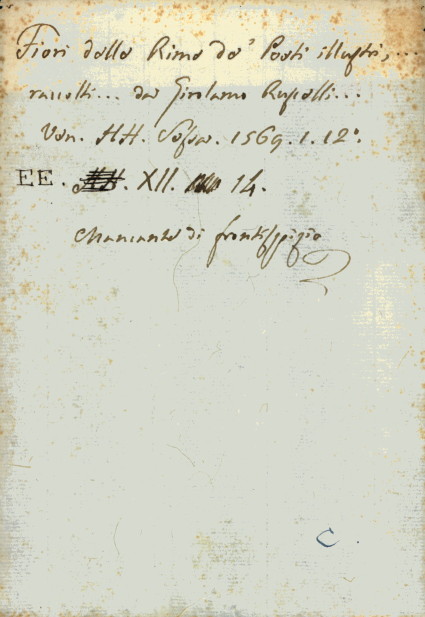 Fiori delle Rime de' Poeti illustri, ...
raccolti ... da Girolamo Ruscelli ...
Ven. HH. Sessa. 1569. 1. 12°.
EE. . XII. 14.
Mancante di frontispizio
C.